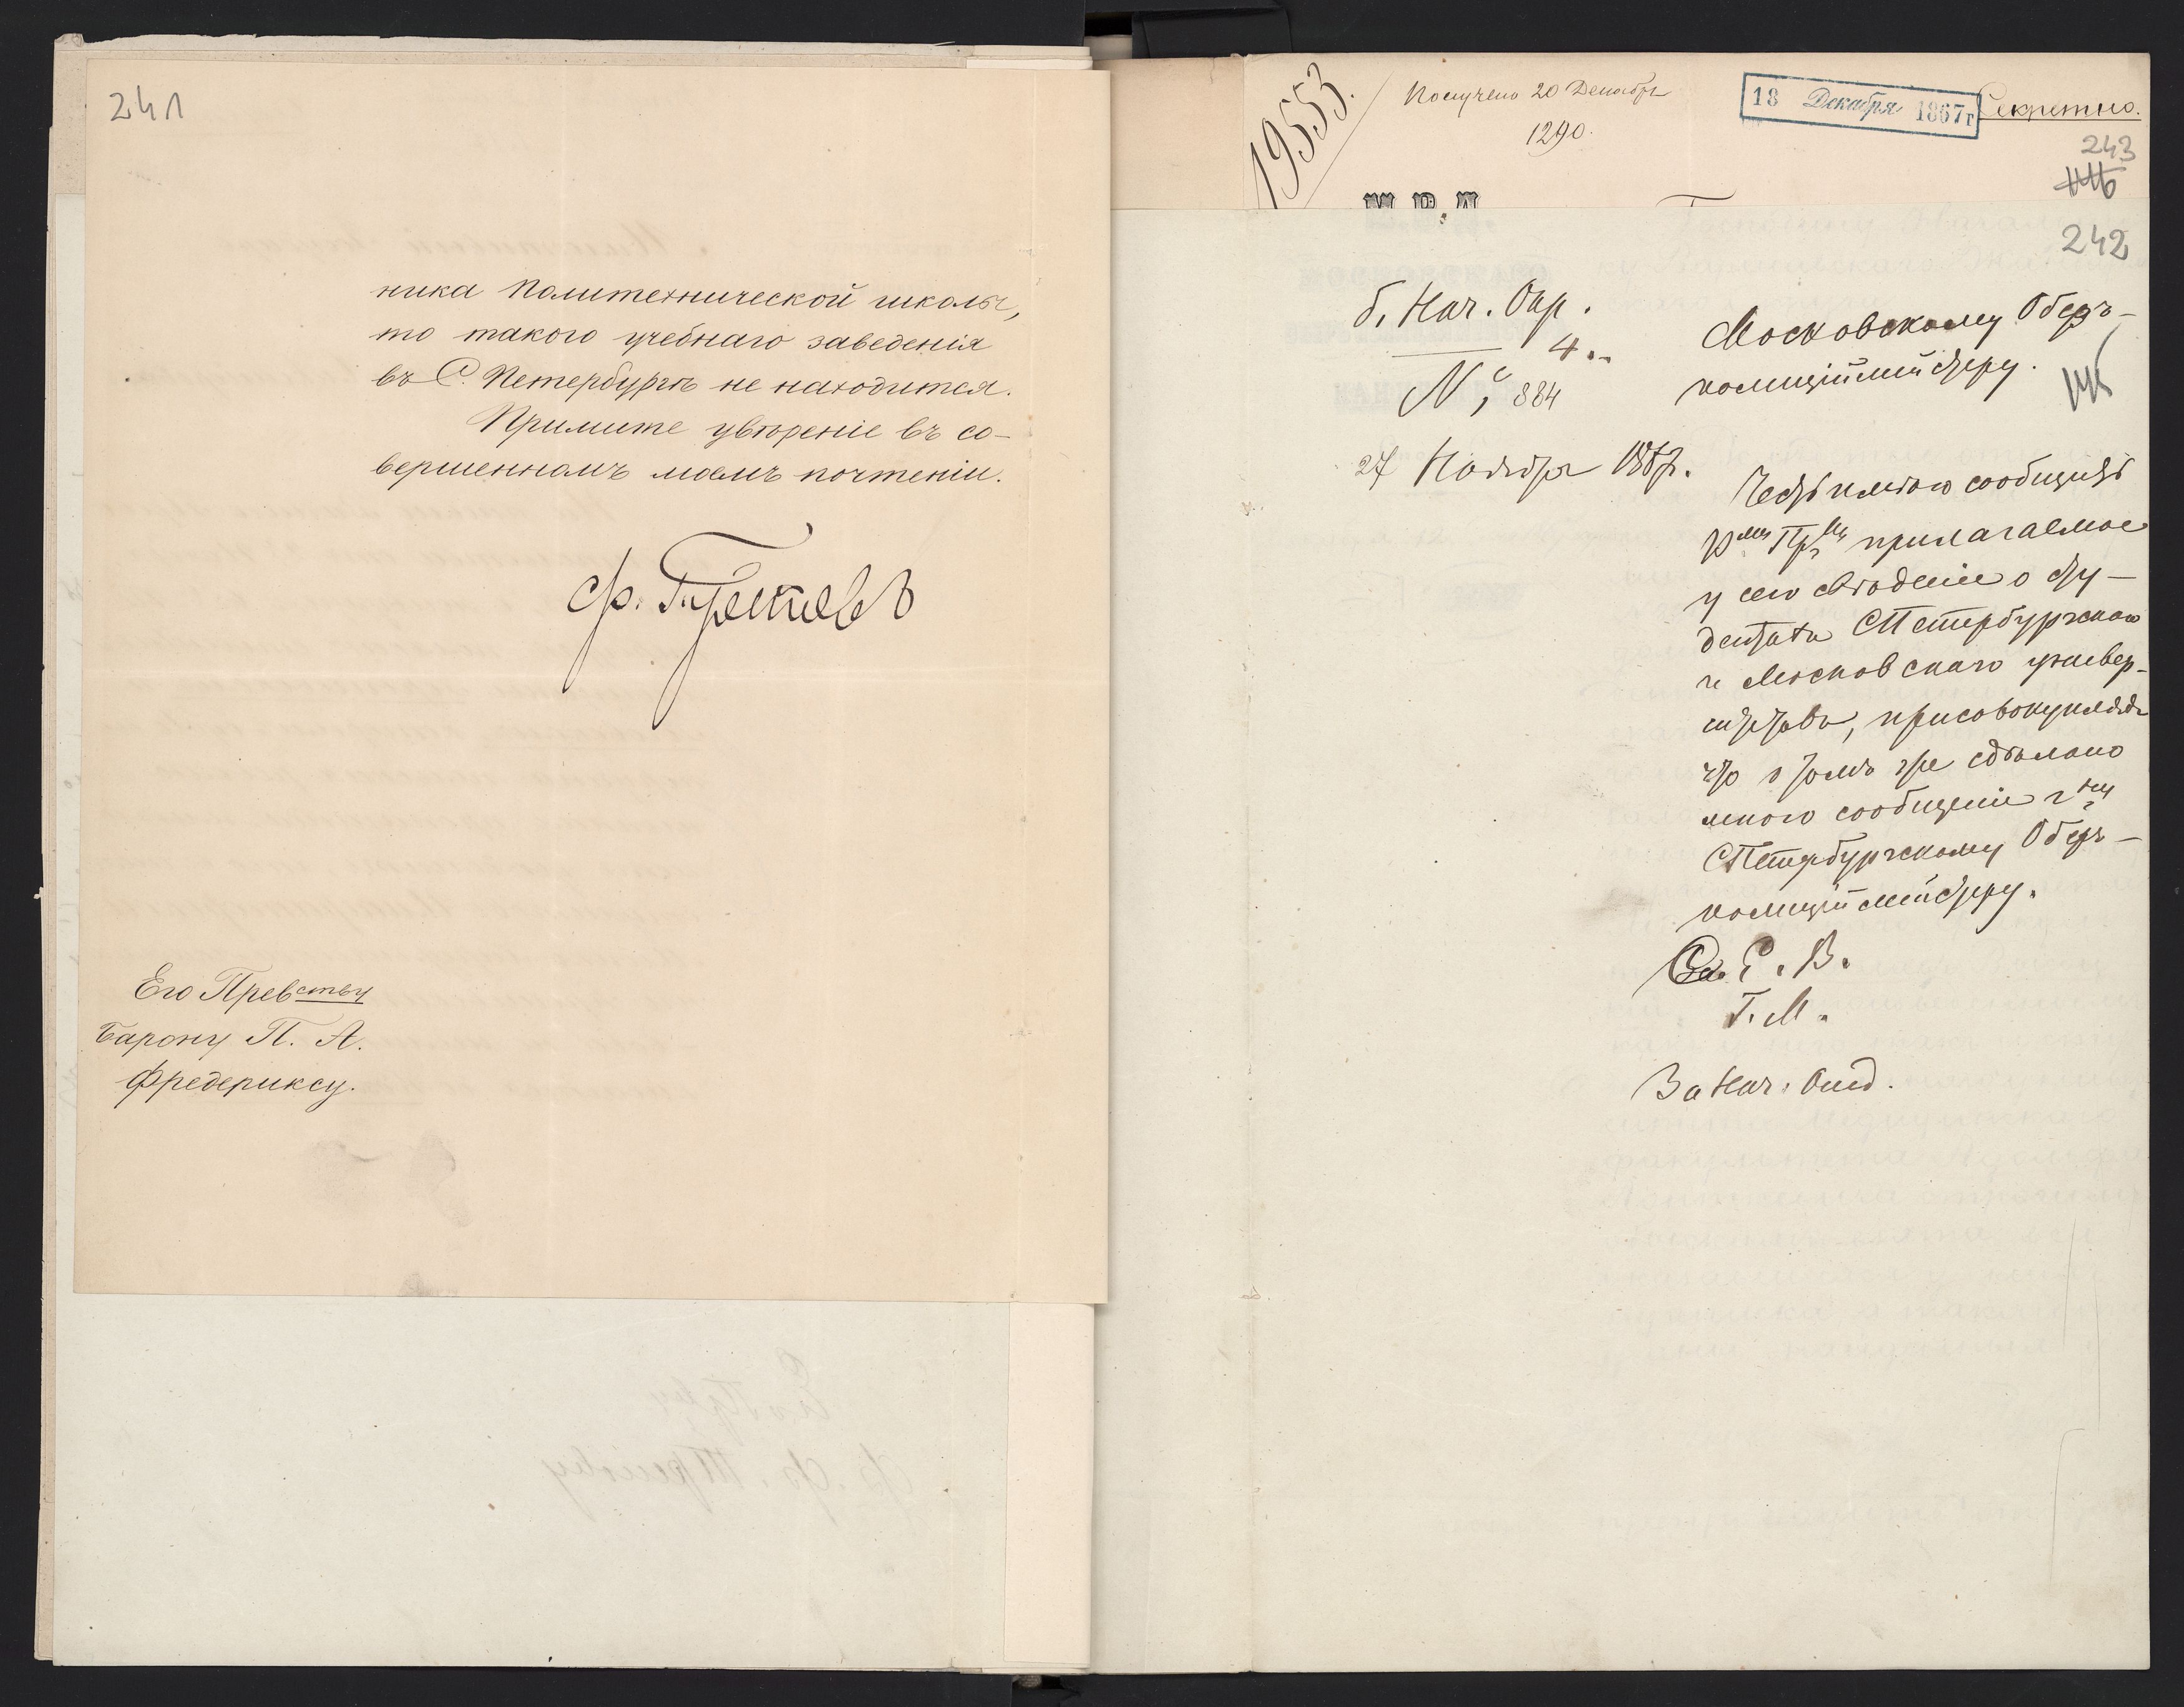 241
ника Политехнической школы,
то такого учебнаго заведенія
въ С. Петербургѣ не находится.
Примите увѣреніе въ со-
вершенномъ моемъ почтеніи.
Ф. Треповъ
Его Прев<u>ству</u>
Барону П. А.
Фредериксу.
19553.
Получено 20 Декабря
1290.
18 Декабря 1867 г
Секретно.
243
242
Нач. Окр.
4
№ 884
27 Ноября 1867.
Московскому Оберъ-
полиціймейстеру.
Честь имѣю сообщить
прилагаемое
у сего свѣдѣніе о сту-
дентахъ СПетербургскаго
и Московскаго универ-
ситетовъ, присовокупляя
что о томъ же сдѣлано
мною сообщеніе
СПетербургскому Оберъ-
полиціймейстеру.
Св. Е. В.
Г. М.
За Нач. Отд.